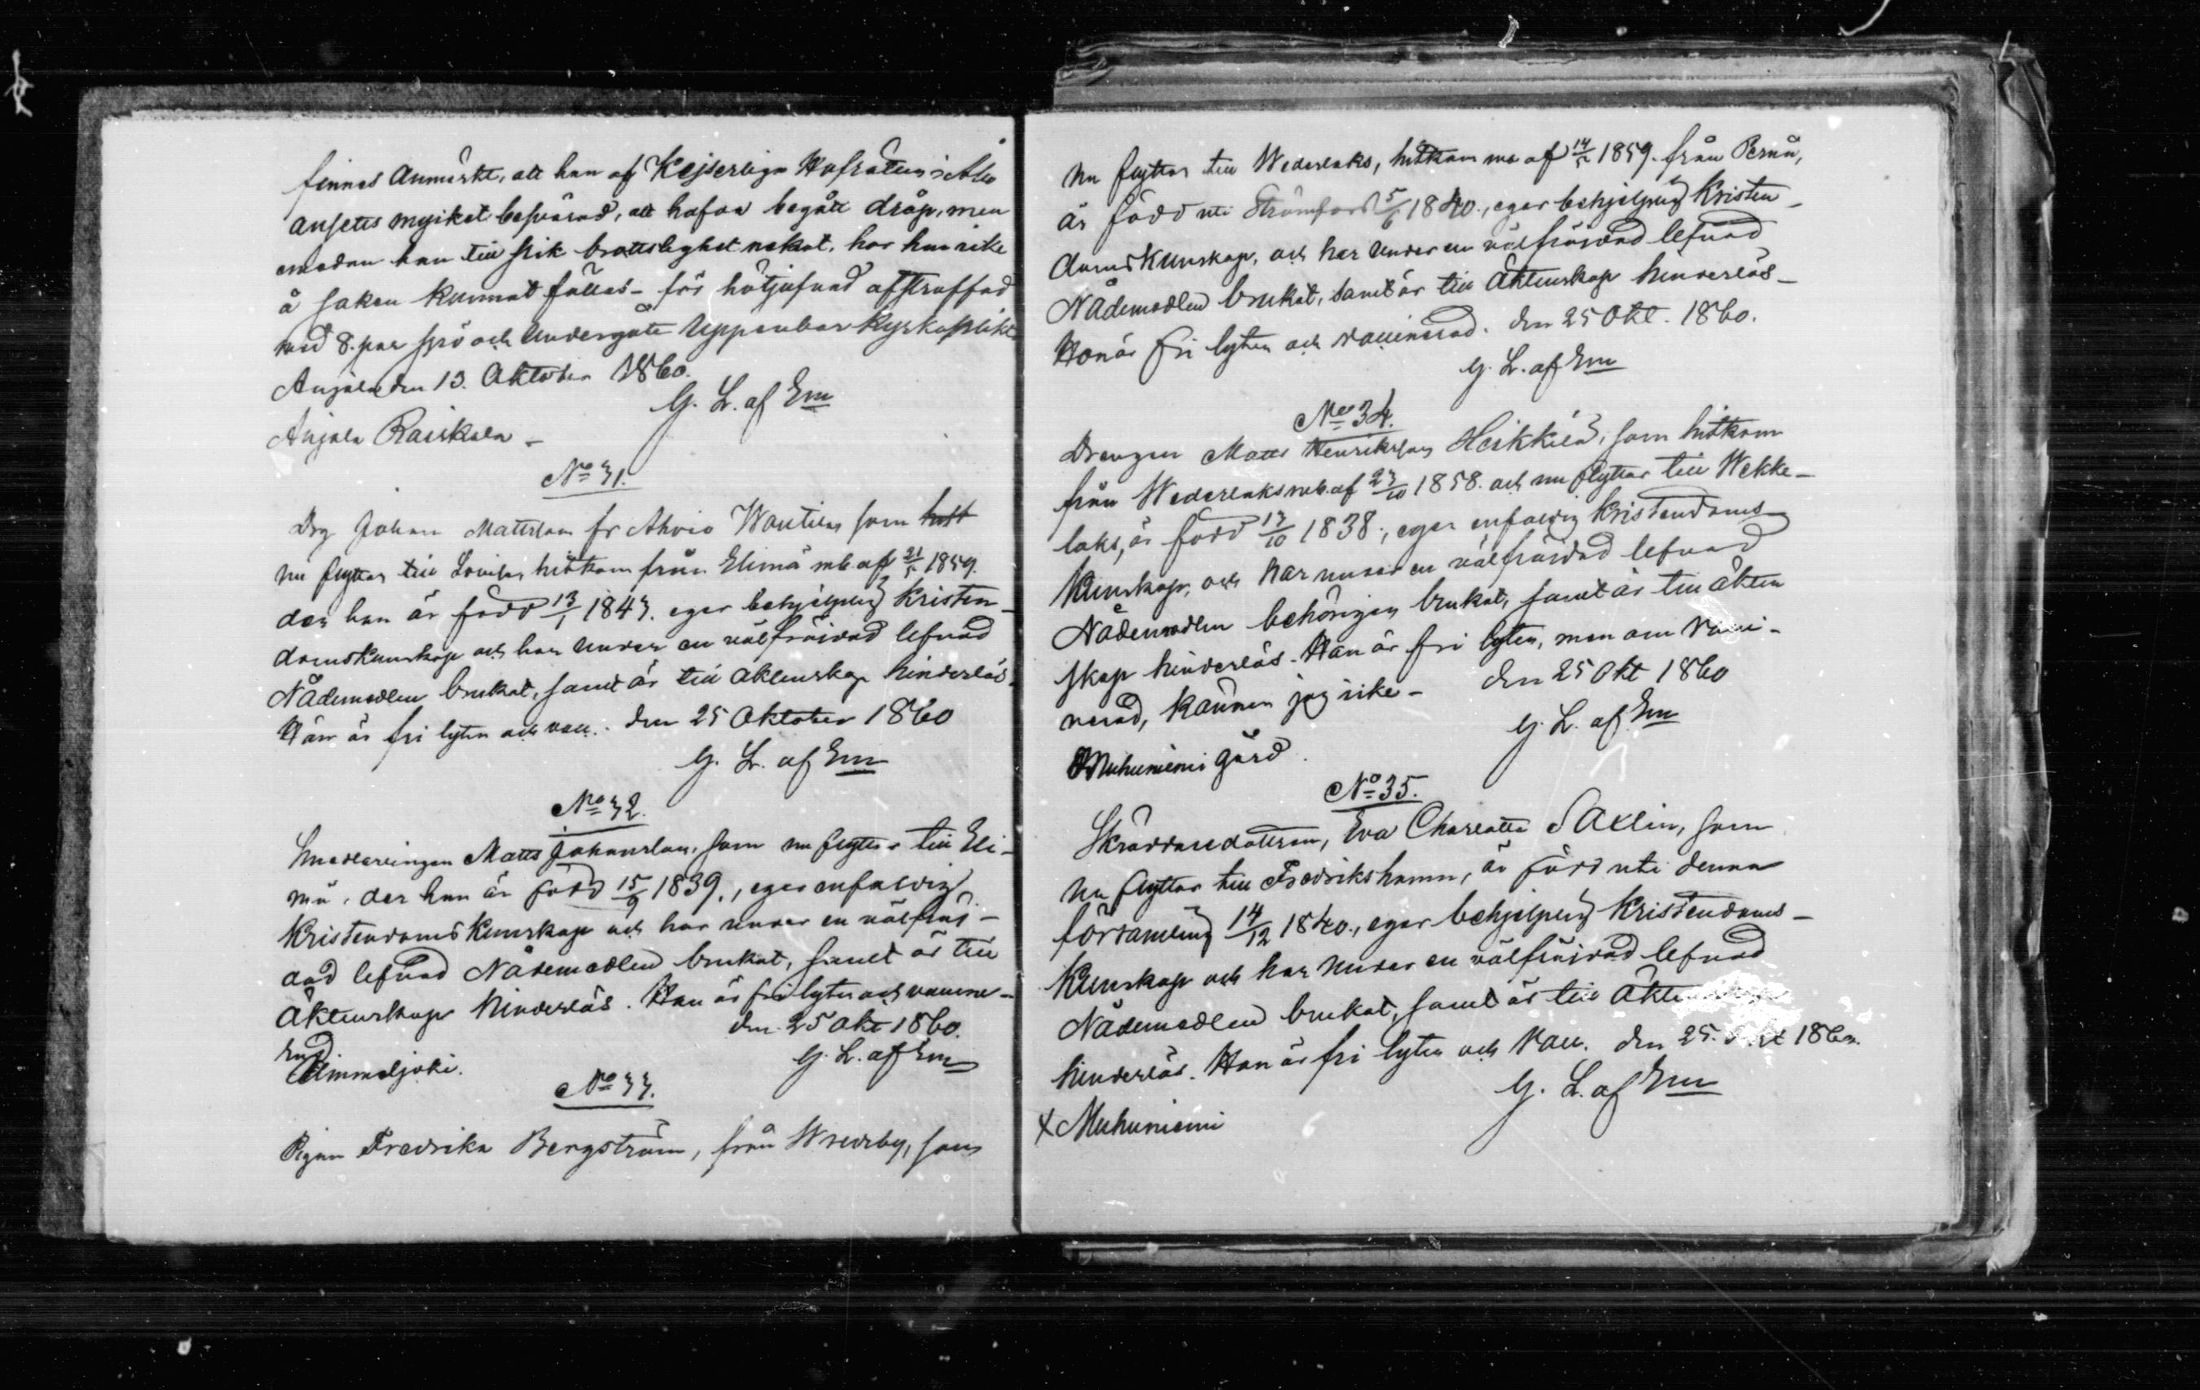 finnes anmärkt, att han af Kejserliga Hofrätten i Åbo
ansetts mycket besvärad, att hafva begått dråp, men
emedan han till slik brottslighet nekat, har han icke
å saken kunnat fällas – för
med 8. par spö och undergått uppenbar kyrkoplikt
Anjala den 13. Oktober 1860.
G. L. af Em
Anjala Rasikala –
No 31.
Drg Johan Mattsson fr Ahvio Wantila som hitt
nu flyttar till Lovisa, hitkom från Elimä mb af 21/5 1859.
der han är född 13/1 1843. eger behjelplig Kristen-
domskunskap och har under en välfräjdad lefnad
Nådemedlen brukat, samt är till äktenskap hinderlös.
Han är fri lyten och vacc. den 25 Oktober 1860
G. L. af Em
No 32.
Smedlärlingen Matts Johansson, som nu flyttar till Eli-
mä, der han är född 15/9 1839., eger enfaldig
Kristendoms Kunskap och har under en välfräj-
dad lefnad Nådemedlen brukat, samt är till
Äktenskap hinderlös. Han är fri lyten och vaccine-
rad
den 25 Okt 1860.
Ummeljoki.
G. L. af Em
No 33.
Pigan Fredrika Bergström, från Wredeby, som
nu flyttar till Wederlaks, hitkom mb af 14/5 1859. från Pernå,
är född uti Strömfors 5/6 1840., eger behjelplig Kristen-
doms Kunskap, och har under en välfräjdad lefnad
Nådemedlen brukat, samt är till Äktenskap hinderlös –
Hon är fri lyten och vaccinerad. den 25 Okt. 1860.
G. L. af Em
No 34.
Drengen Matts Henriksson Heikkilä, som hitkom
från Wederlaks mb af 23/10 1858. och nu flyttar till Wekke-
laks, är född 13/10 1838., eger enfaldig Kristendoms
Kunskap, och har under en välfräjdad lefnad
Nådemedlen behörigen brukat, samt är till äkten
skap hinderlös. Han är fri lyten, men om vacci-
nerad, känner jag icke – den 25 Okt 1860
G. L. af Em
Muhuniemi gård.
No 35.
Skräddaredottren, Eva Charlotta Saxlin, som
nu flyttar till Fredrikshamn, är född uti denna
församling 14/12 1840., eger behjelplig Kristendoms-
Kunskap och har under en välfräjdad lefnad
Nådemedlen brukat, samt är till Äktenskap
hinderlös. Hon är fri lyten och vacc. den 25. Okt 1860.
G. L. af Em
x Muhuniemi